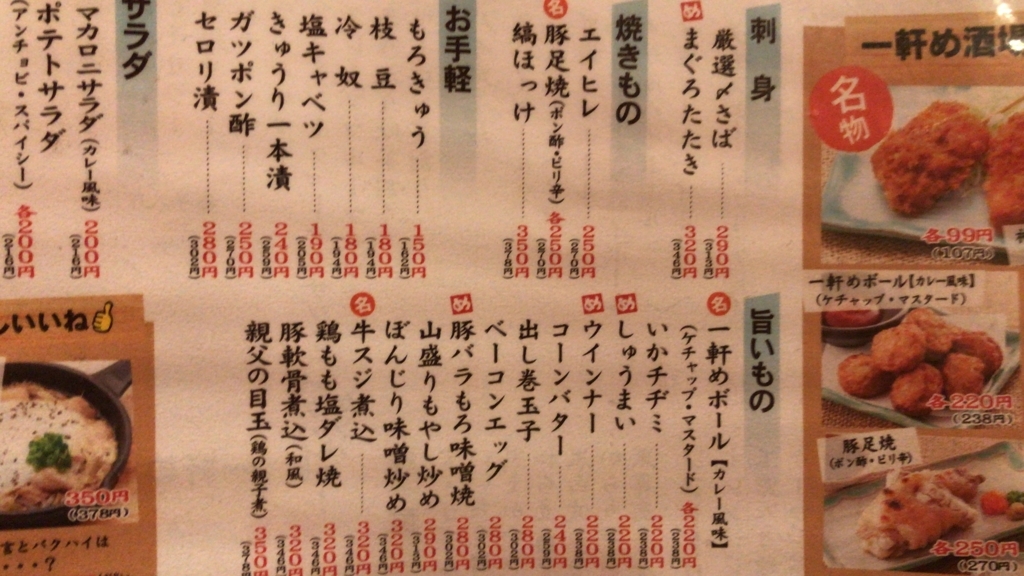 一軒め酒場
名物
各99円
(107円)
一軒めボール【カレー風味】
(ケチャップ・マスタード)
各220円
(238円)
豚足焼
(ポン酢・ピリ辛)
各250円
(270円)
刺身
厳選〆さば 290円 (313円)
め まぐろたたき 320円 (346円)
焼きもの
エイヒレ 250円 (270円)
名 豚足焼(ポン酢・ピリ辛) 各250円 (270円)
縞ほっけ 350円 (378円)
お手軽
もろきゅう 150円 (162円)
枝豆 180円 (194円)
冷奴 180円 (194円)
塩キャベツ 190円 (205円)
きゅうり一本漬 240円 (259円)
ガツポン酢 250円 (270円)
セロリ漬 280円 (302円)
サラダ
マカロニサラダ(カレー風味) 200円 (216円)
ポテトサラダ
(アンチョビ・スパイシー) 各200円 (216円)
旨いもの
名 一軒めボール【カレー風味】
(ケチャップ・マスタード) 各220円
いかチヂミ 220円 (238円)
め しゅうまい 220円 (238円)
め ウインナー 220円 (238円)
コーンバター 240円 (259円)
出し巻玉子 280円 (302円)
ベーコンエッグ 280円 (302円)
め 豚バラもろ味噌焼 280円 (302円)
山盛りもやし炒め 290円 (313円)
ぼんじり味噌炒め 320円 (346円)
名 牛スジ煮込 320円 (346円)
鶏もも塩ダレ焼 320円 (346円)
豚軟骨煮込(和風) 320円 (346円)
親父の目玉(鶏の親子煮) 350円 (378円)
いいね
350円
(378円)
言とパクハイは
・・・?